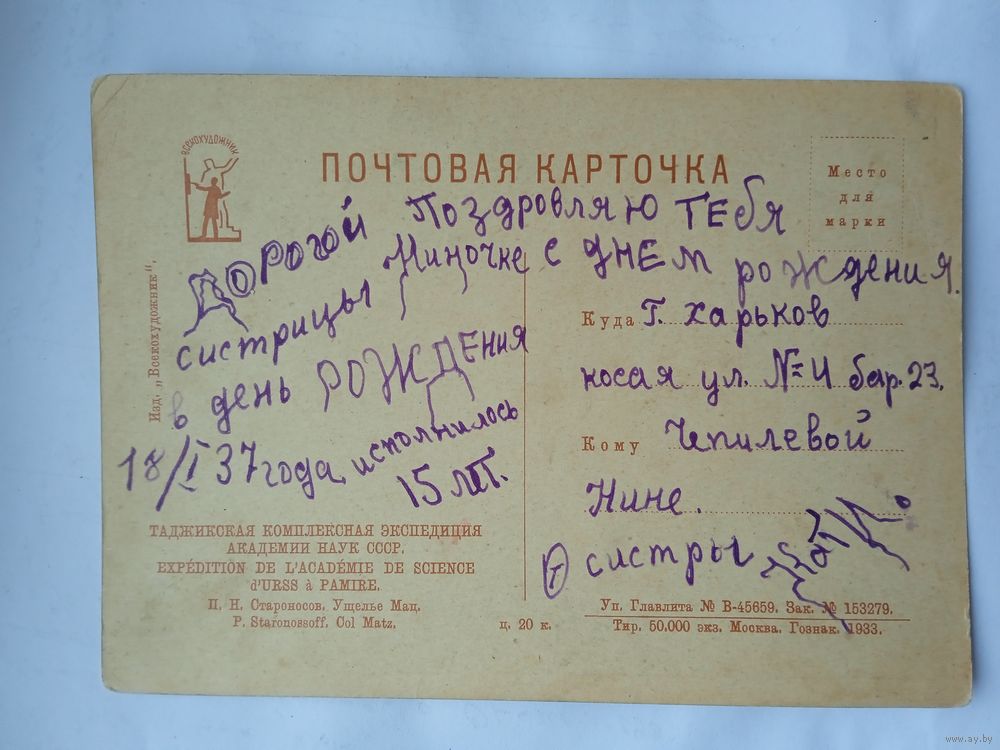 ВСЕКОХУДОЖНИК
ПОЧТОВАЯ КАРТОЧКА
Место
для
марки
Изд. „Всекохудожник“.
ДОРОГОЙ Поздровляю ТЕбя
систрицы Ниночке с ДНЕМ рождения.
в день РОЖДЕНИЯ
18/I 37 года, исполнилось
15 лет.
Куда Г. Харьков
косая ул. №=4 бар. 23.
Кому Чепилевой
Нине.
От систры
ТАДЖИКСКАЯ КОМПЛЕКСНАЯ ЭКСПЕДИЦИЯ
АКАДЕМИИ НАУК СССР.
EXPÉDITION DE L'ACADÉMIE DE SCIENCE
d'URSS à PAMIRE.
П. Н. Староносов. Ущелье Мац.
P. Staronossoff. Col Matz.
ц. 20 к.
Уп. Главлита № В-45659. Зак. № 153279.
Тир. 50.000 экз. Москва. Гознак. 1933.
www.ay.by